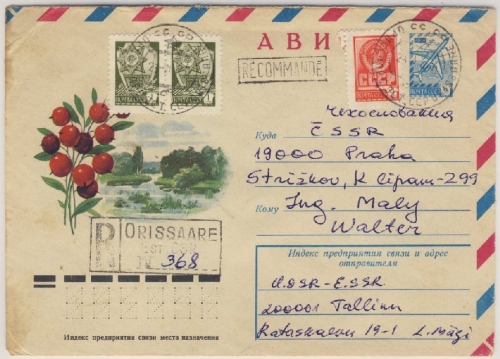 АВИ
RECOMMANDÉ
СССР
Чехословакия
Куда
ČSSR
19000 Praha
Střížkov, K lipám-299
Кому
Ing. Maly
Walter
R
ORISSAARE
EST. SSR
N 368
Индекс предприятия связи и адрес
отправителя
USSR-ESSR
200001 Tallinn
Rataskaevu 19-1 L. Mägi
Индекс предприятия связи места назначения